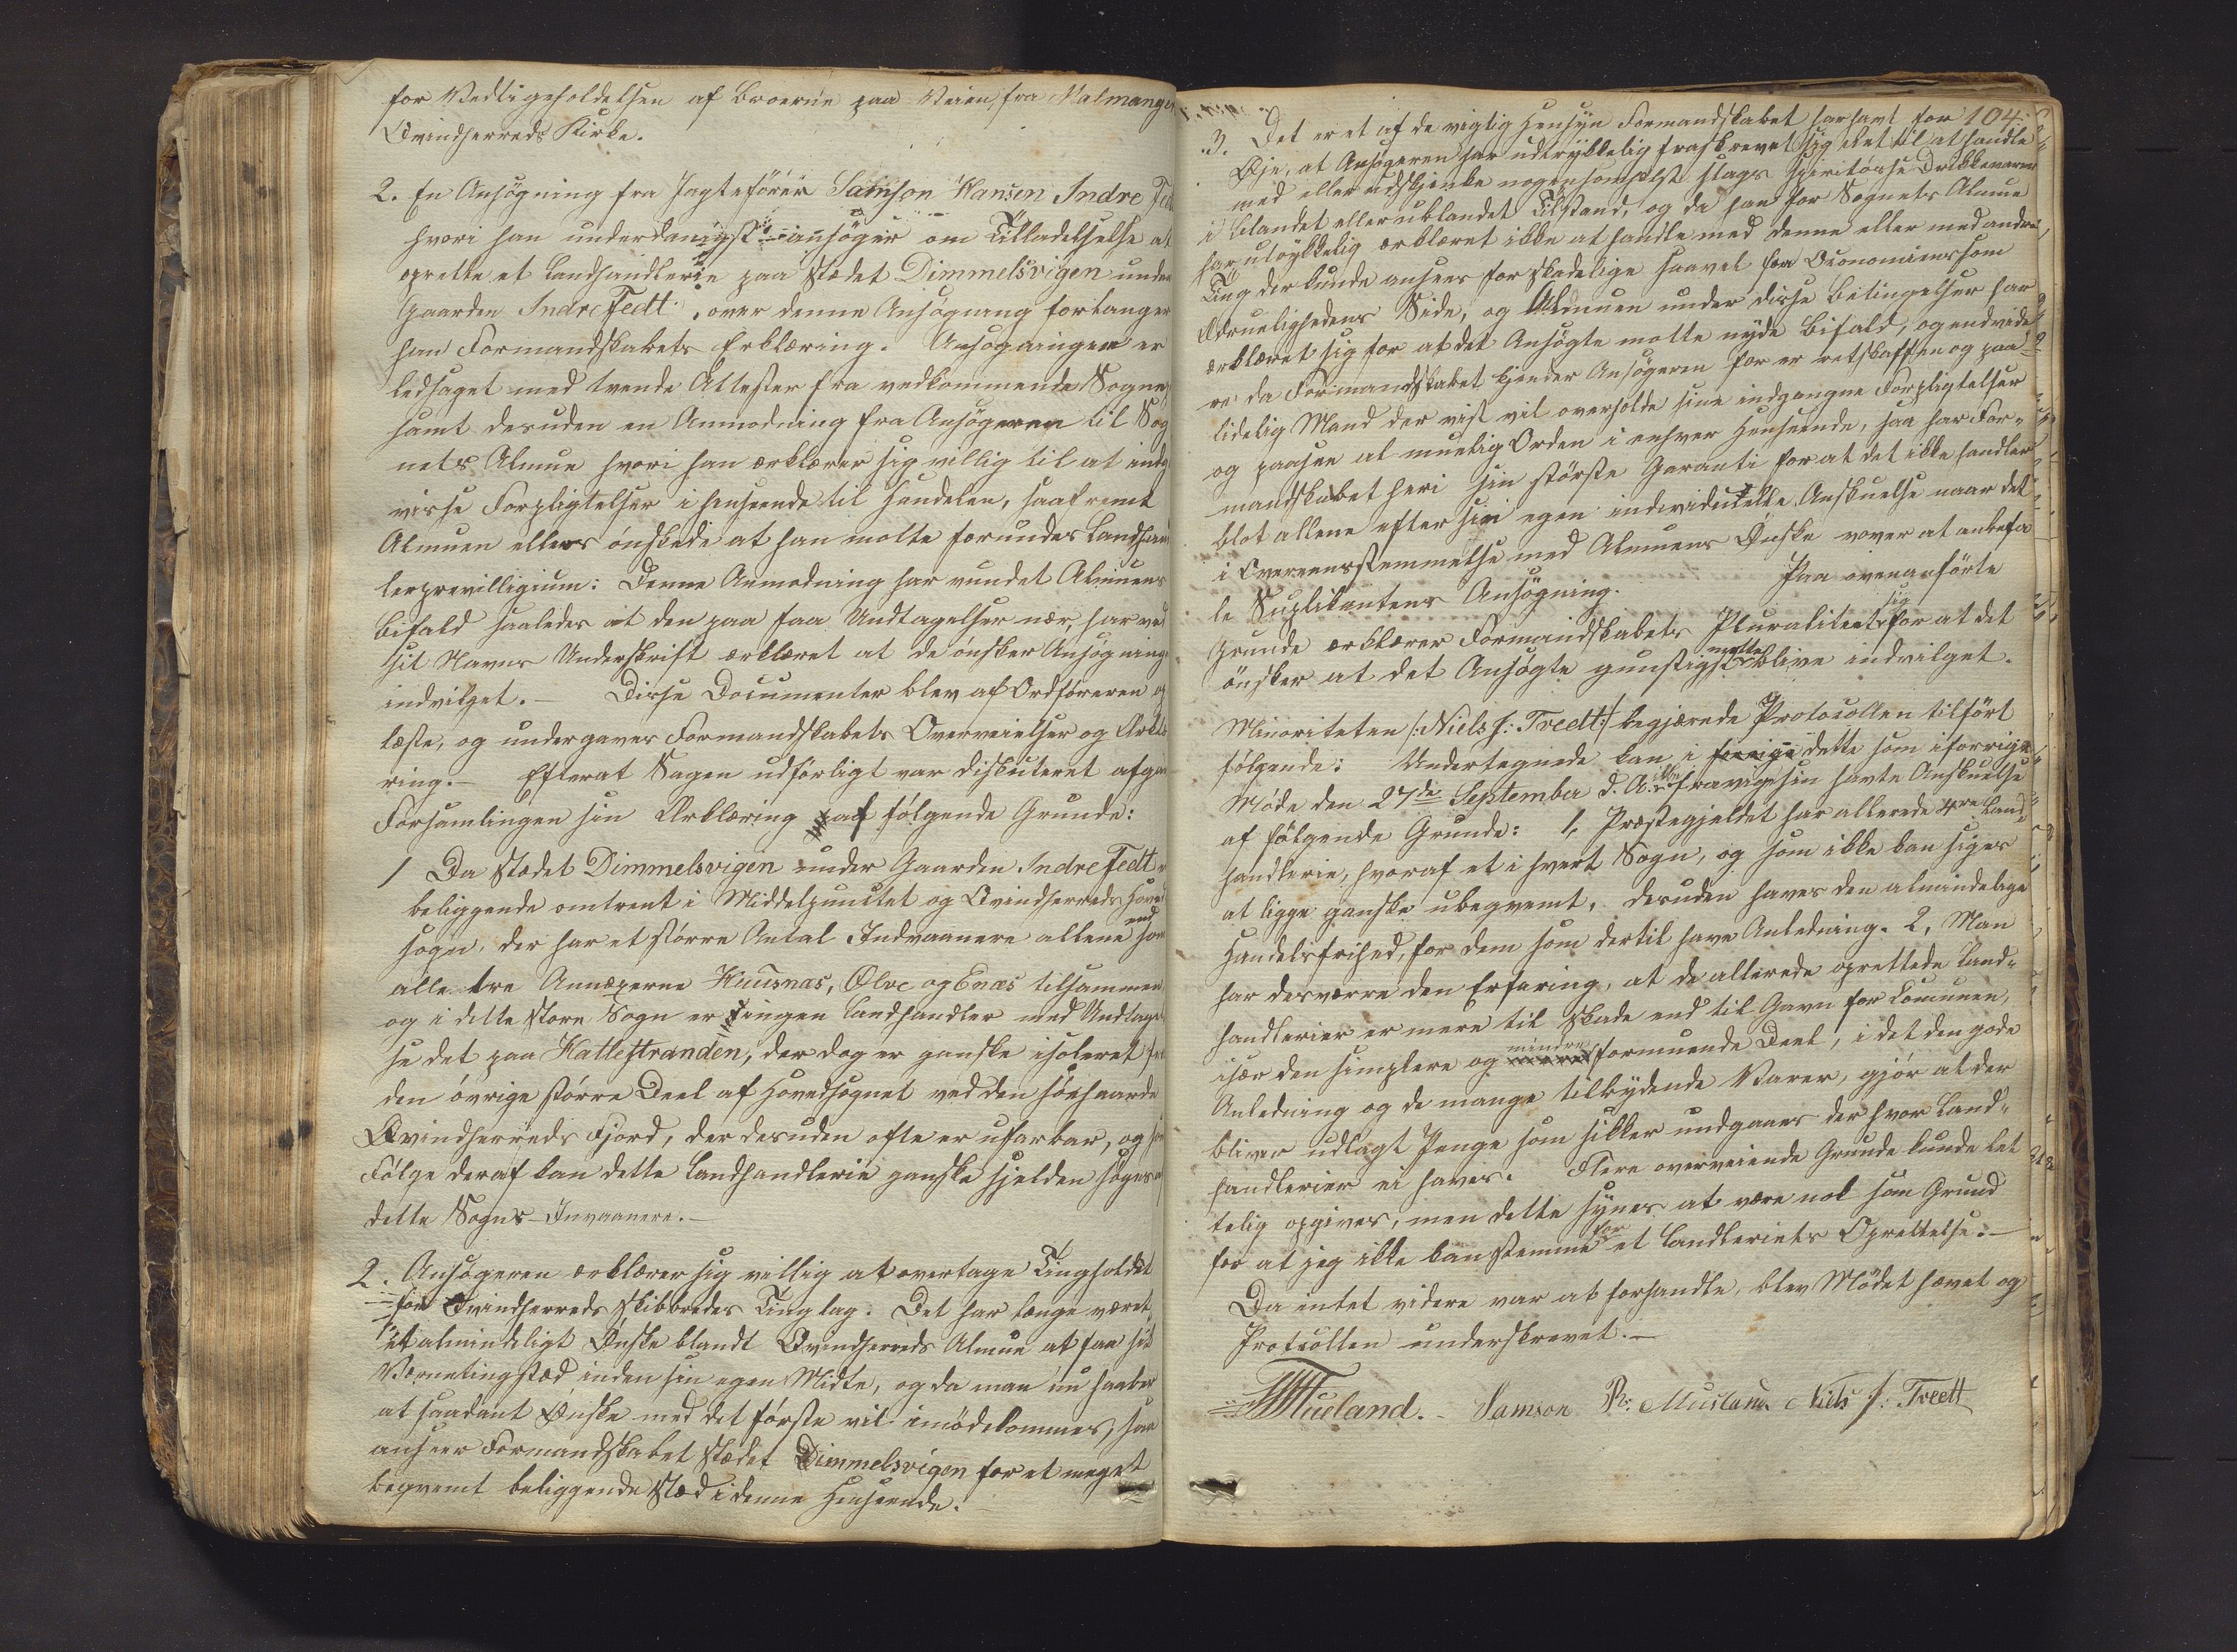 for Vedligeholdelsen af Broerne paa Veien fra Malmanger
Qvindherreds Kirke.
2. En Ansøgning fra Jagtefører Samson Hansen Indre Fedt
hvori han underdanigst ansøger om Tilladelselse at
oprette et Landhandlerie paa Stedet Dimmelsvigen under
Gaarden Indre Fedt, over denne Ansøgning forlanger
han Formandskabets Erklæring. Ansøgningen er
ledsaget med tvende Attester fra vedkommende Sogne
samt desuden en Anmodning fra Ansøgeren til Sog
nets Almue hvori han erklærer sig villig til at indg
visse Forpligtelser i henseende til Handelen, saafremt
Almuen ellers ønskede at han motte forundes Landhand
lerprevilligium: Denne Anmodning har vundet Almuens
Bifald saaledes at den paa faa Undtagelser nær, har ved
sit Navns Underskrift erklæret at de ønsker Ansøgninge
indvilget. — Disse Documenter blev af Ordføreren op
læste, og undergaves Formandskabets Overveielser og Erklæ
ring. — Efterat Sagen udførligt var diskuteret afgav
Forsamlingen sin Erklæring af følgende Grunde:
1 Da Stedet Dimmelsvigen under Gaarden Indre Fedt er
beliggende omtrent i Middelpunctet og Qvindherreds Hoved
sogn, der har et større Antal Indvaanere allene end som
alle tre Annexerne Huusnæs, Ølve og Enæs tilsammen
og i dette store Sogn er ingen Landhandler med Undtagel
se det paa Hatlestranden, der dog er ganske isoleret fra
den øvrige større Deel af Hovedsognet ved den søehaarde
Qvindherreds Fjord, der desuden ofte er ufarbar, og som
Følge deraf kan dette Landhandlerie ganske sjelden søges af
dette Sogns Invaanere. —
2. Ansøgeren erklærer sig villig at overtage Tingholdet
for Qvindherreds Skibbredes Tinglag. Det har længe været
et almindeligt Ønske blandt Qvindherreds Almue at faa sit
Værnetingsted inden sin egen Midte, og da man nu haaber
at saadant Ønske med det første vil imødekommes, saa
anseer Formandskabet Stedet Dimmelsvigen for et meget
beqvemt beliggende Sted i denne Henseende. —
104.
3. Det er et af de vigtig Hensyn Formandskabet har havt for
Øje, at Ansøgeren har udtrykkelig fraskrevet sig Ret til at handle
med eller udskjenke nogensomhelst slags spirituøse Drikkevarer
i blandet eller ublandet Tilstand, og da han for Sognets Almue
har utøykkelig erklæret ikke at handle med denne eller med andre
Ting der kunde ansees for skadelige saavel fra Oeconomiens som
Ædrueligheden's Side, og Almuen under disse Betingelser har
erklæret sig for at det Ansøgte motte nyde Bifald, og endvide
re da Formandskabet kjender Ansøgeren for en retskaffen og paa
lidelig Mand der vist vil overholde sine indgangne Forpligtelser
og paasee al muelig Orden i enhver Henseende, saa har For¬
mandskabet heri sin største Garanti for at det ikke handler
blot allene efter sin egen individuelle Anskuelse naar det
i Overeensstemmelse med Almuens Ønske vover at anbefa
le Suplikantens Ansøgning. Paa ovenanførte
Grunde erklærer Formandskabets Pluralitet sig for at det
ønsker at det Ansøgte gunstigst motte blive indvilget.
Minoriteten /: Niels J: Tveedt :/ begjærede Protocollen tilført
følgende: Undertegnede kan i forrige dette som i forrige
Møde den 27de September d. A. ikke fravige sin havte Anskuelse
af følgende Grunde: 1, Præstegjeldet har allerede 4re Land¬
handlerie, hvoraf et i hvert Sogn, og som ikke kan siges
at ligge ganske ubeqvemt, desuden haves den almindelige
Handelsfrihed, for dem som dertil have Anledning. 2, Man
har desværre den Erfaring, at de allerede oprettede Land¬
handlerier er mere til Skade end til Gavn for Comunen,
især den simplere og mindre formuende Deel, i det den gode
Anledning og de mange tilbydende Varer, gjør at der
bliver udlagt Penge som sikker undgaaes der hvor Land¬
handlerier ei haves. Flere overveiende Grunde kunde let
telig opgives, men dette synes at være nok som Grund
for at jeg ikke kan stemme for et Landleriets Oprettelse: —
Da intet videre var at forhandle, blev Mødet hævet og
Protcollen underskrevet. —
Tueland. Samson R: Musland Niels J: Tveett